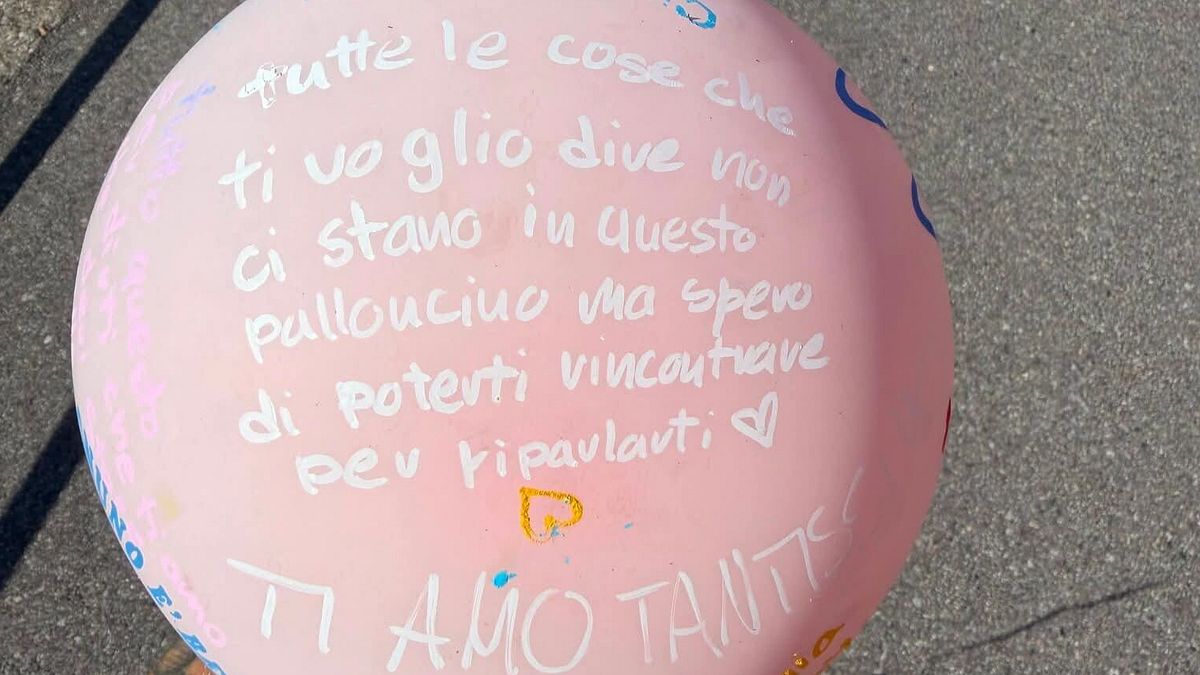 tutte le cose che
ti voglio dire non
ci stano in questo
palloncino ma spero
di poterti rincontrare
per riparlarti ♡
TI AMO TANTISS